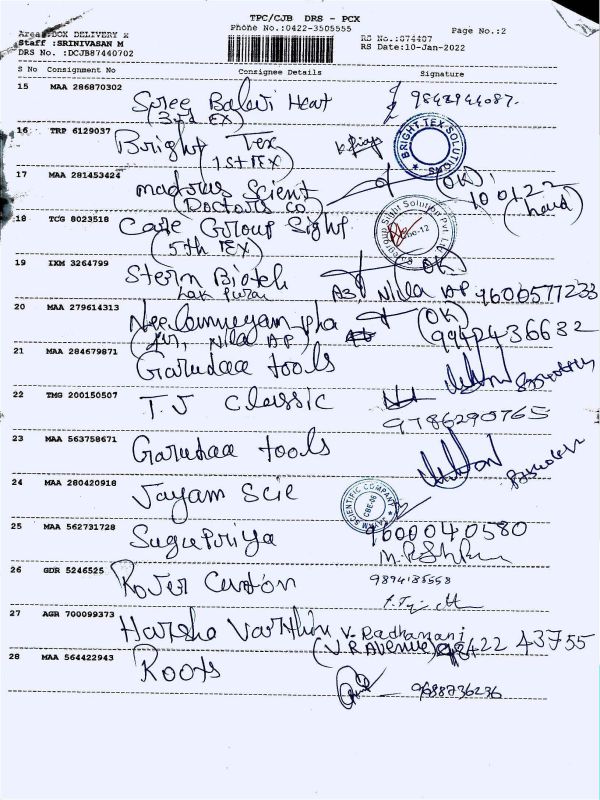 TPC/CJB DRS - PCX
Phone No.:0422-3505555
Page No.:2
Area :DOX DELIVERY
Staff :SRINIVASAN M
DRS No. :DCJB87440702
RS No.:874407
RS Date:10-Jan-2022
S No Consignment No Consignee Details Signature
15 MAA 286870302 Sree Balavi Heat
(3rd EX)
16 TRP 6129037 Bright Tex
(1st EX)
BRIGHT TEX SOLUTION
17 MAA 281453424 madras Scient (OK)
(Doctors Co) 100122
(hand)
18 TCG 8023518 Care Group Sight
(5th EX)
Caregroup Sight Solution Pvt. Ltd
19 IXM 3264799 Sterin Biotech (OK)
A3 Nila AP 9600577233
20 MAA 279614313 Neelamueyam pha (OK)
Nila AP) 9942436632
21 MAA 284679871 Garudaa tools
22 TMG 200150507 T.J Classic
9786290765
23 MAA 563758671 Garudaa tools
24 MAA 280420918 Jayam Scie
JAYAM SCIENTIFIC COMPANY
25 MAA 562731728 Sugupriya 9600040580
26 GDR 5246525 Rover Carton 9894135558
27 AGR 700099373 Harsha Varthini V. Radhamani
(V.P. Avenue) 98422 43755
28 MAA 564422943 Roots
9688736236